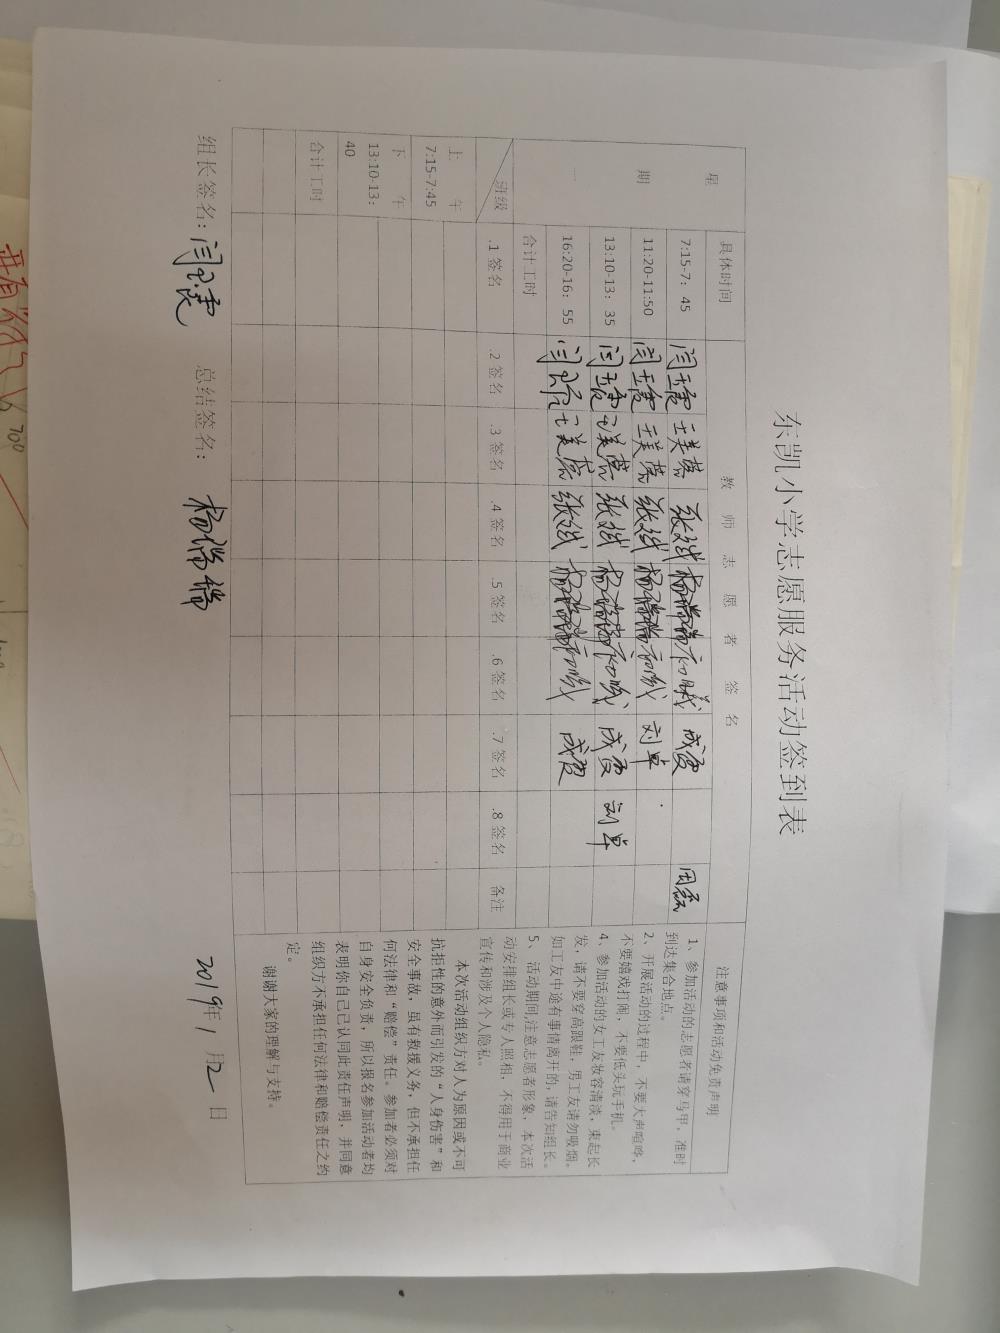 东凯小学志愿服务活动签到表
星期一 具体时间 教师志愿者签名 注意事项和活动免责声明
7:15-7：45 闫玉霞 王美荣 张斌 杨瑞瑞 成霞 田磊
11:20-11:50 闫玉霞 王美荣 张斌 杨瑞瑞 刘卓
13:10-13：35 闫玉霞 王美荣 张斌 杨瑞瑞 成霞 刘卓
16:20-16：55 闫玉霞 王美荣 张斌 杨瑞瑞 成霞
合计工时
班级 .1 签名 .2 签名 .3 签名 .4 签名 .5 签名 .6 签名 .7 签名 .8 签名 备注
上午
7:15-7:45
下午
13:10-13：
40
合计工时
1、参加活动的志愿者请穿马甲，准时
到达集合地点。
2、开展活动的过程中，不要大声喧哗，
不要嬉戏打闹，不要低头玩手机。
4、参加活动的女工友妆容清淡，束起长
发，请不要穿高跟鞋，男工友请勿吸烟。
如工友中途有事情离开的，请告知组长。
5、活动期间,注意志愿者形象，本次活
动安排组长或专人照相，不得用于商业
宣传和涉及个人隐私。
本次活动组织方对人为原因或不可
抗拒性的意外而引发的“人身伤害”和
安全事故，虽有救援义务，但不承担任
何法律和“赔偿”责任。参加者必须对
自身安全负责，所以报名参加活动者均
表明你自己已认同此责任声明，并同意
组织方不承担任何法律和赔偿责任之约
定。
谢谢大家的理解与支持。
组长签名：闫玉霞 总结签名： 杨瑞瑞 2019年1月2日
700